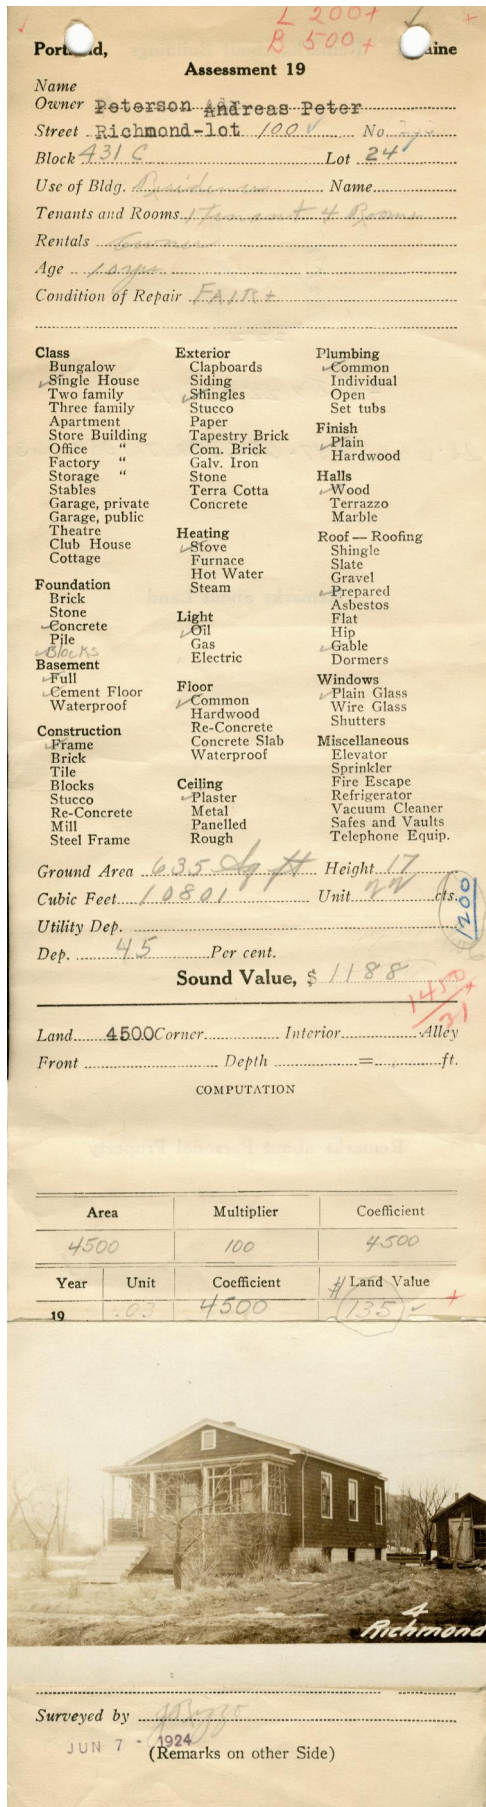 L 200+
B 500+
Portland, Maine
Assessment 19
Name
Owner Peterson Andreas Peter
Street Richmond-lot 100 No.
Block 431 C Lot 24
Use of Bldg. Residence Name
Tenants and Rooms 1 tenant 4 Rooms
Rentals Owner
Age 10 yrs.
Condition of Repair FAIR +
Class
Bungalow
Single House
Two family
Three family
Apartment
Store Building
Office "
Factory "
Storage "
Stables
Garage, private
Garage, public
Theatre
Club House
Cottage
Foundation
Brick
Stone
Concrete
Pile
Blocks
Basement
Full
Cement Floor
Waterproof
Construction
Frame
Brick
Tile
Blocks
Stucco
Re-Concrete
Mill
Steel Frame
Exterior
Clapboards
Siding
Shingles
Stucco
Paper
Tapestry Brick
Com. Brick
Galv. Iron
Stone
Terra Cotta
Concrete
Heating
Stove
Furnace
Hot Water
Steam
Light
Oil
Gas
Electric
Floor
Common
Hardwood
Re-Concrete
Concrete Slab
Waterproof
Ceiling
Plaster
Metal
Panelled
Rough
Plumbing
Common
Individual
Open
Set tubs
Finish
Plain
Hardwood
Halls
Wood
Terrazzo
Marble
Roof — Roofing
Shingle
Slate
Gravel
Prepared
Asbestos
Flat
Hip
Gable
Dormers
Windows
Plain Glass
Wire Glass
Shutters
Miscellaneous
Elevator
Sprinkler
Fire Escape
Refrigerator
Vacuum Cleaner
Safes and Vaults
Telephone Equip.
Ground Area 635 Sq ft Height 17
Cubic Feet 10801 Unit 22 cts.
1200
Utility Dep.
Dep. 45 Per cent.
Sound Value, $ 1188
1450+
31
Land 4500 Corner Interior Alley
Front Depth = ft.
COMPUTATION
Area Multiplier Coefficient
4500 100 4500
Year Unit Coefficient # Land Value
19 .03 4500 135 +
4
Richmond
Surveyed by
JUN 7 - 1924
(Remarks on other Side)